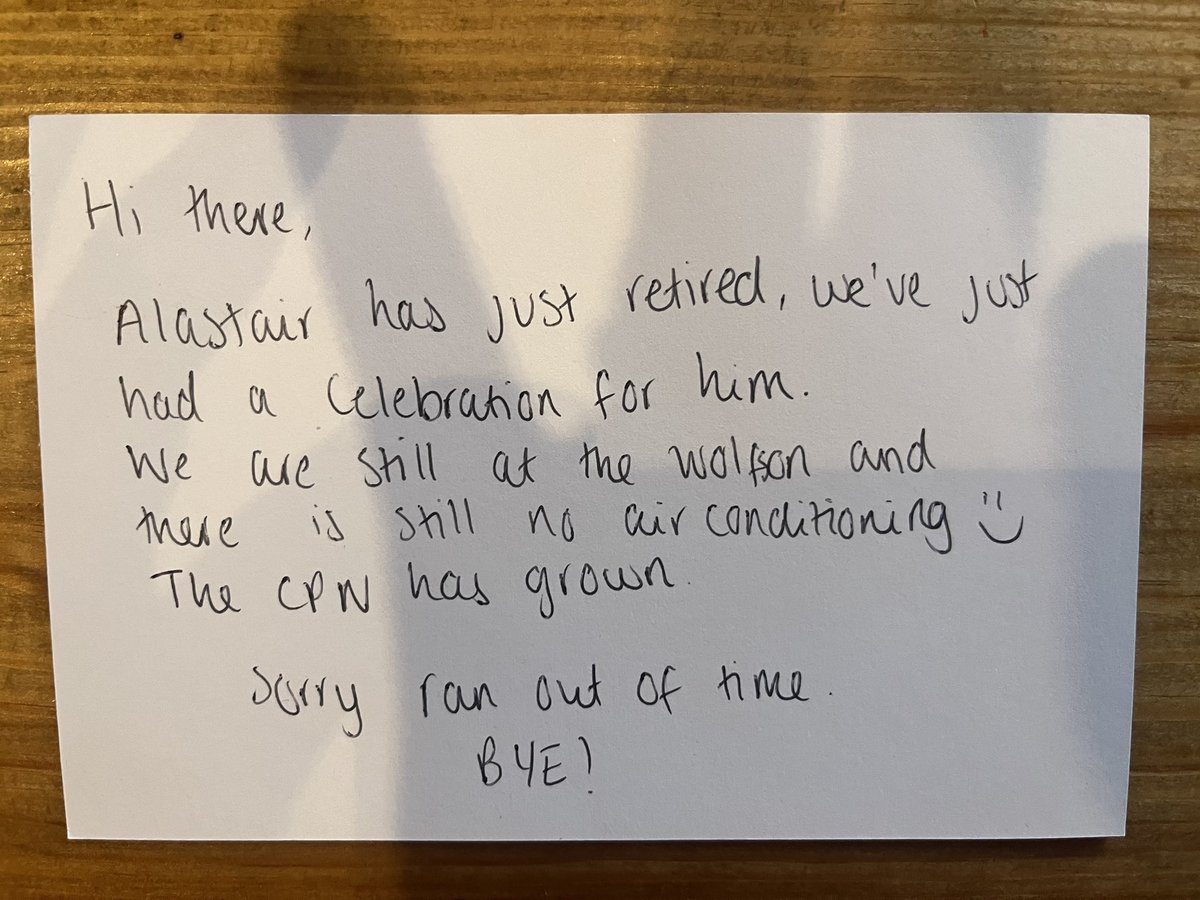 Hi there,
Alastair has just retired, we've just
had a Celebration for him.
We are still at the wolfson and
there is still no air conditioning
The CPN has grown.
Sorry ran out of time.
BYE!